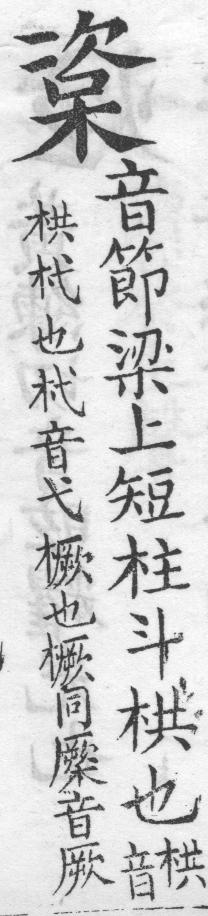 楶
音節梁上短柱斗栱也栱音
栱杙也杙音弋橛也橛同橜音厥